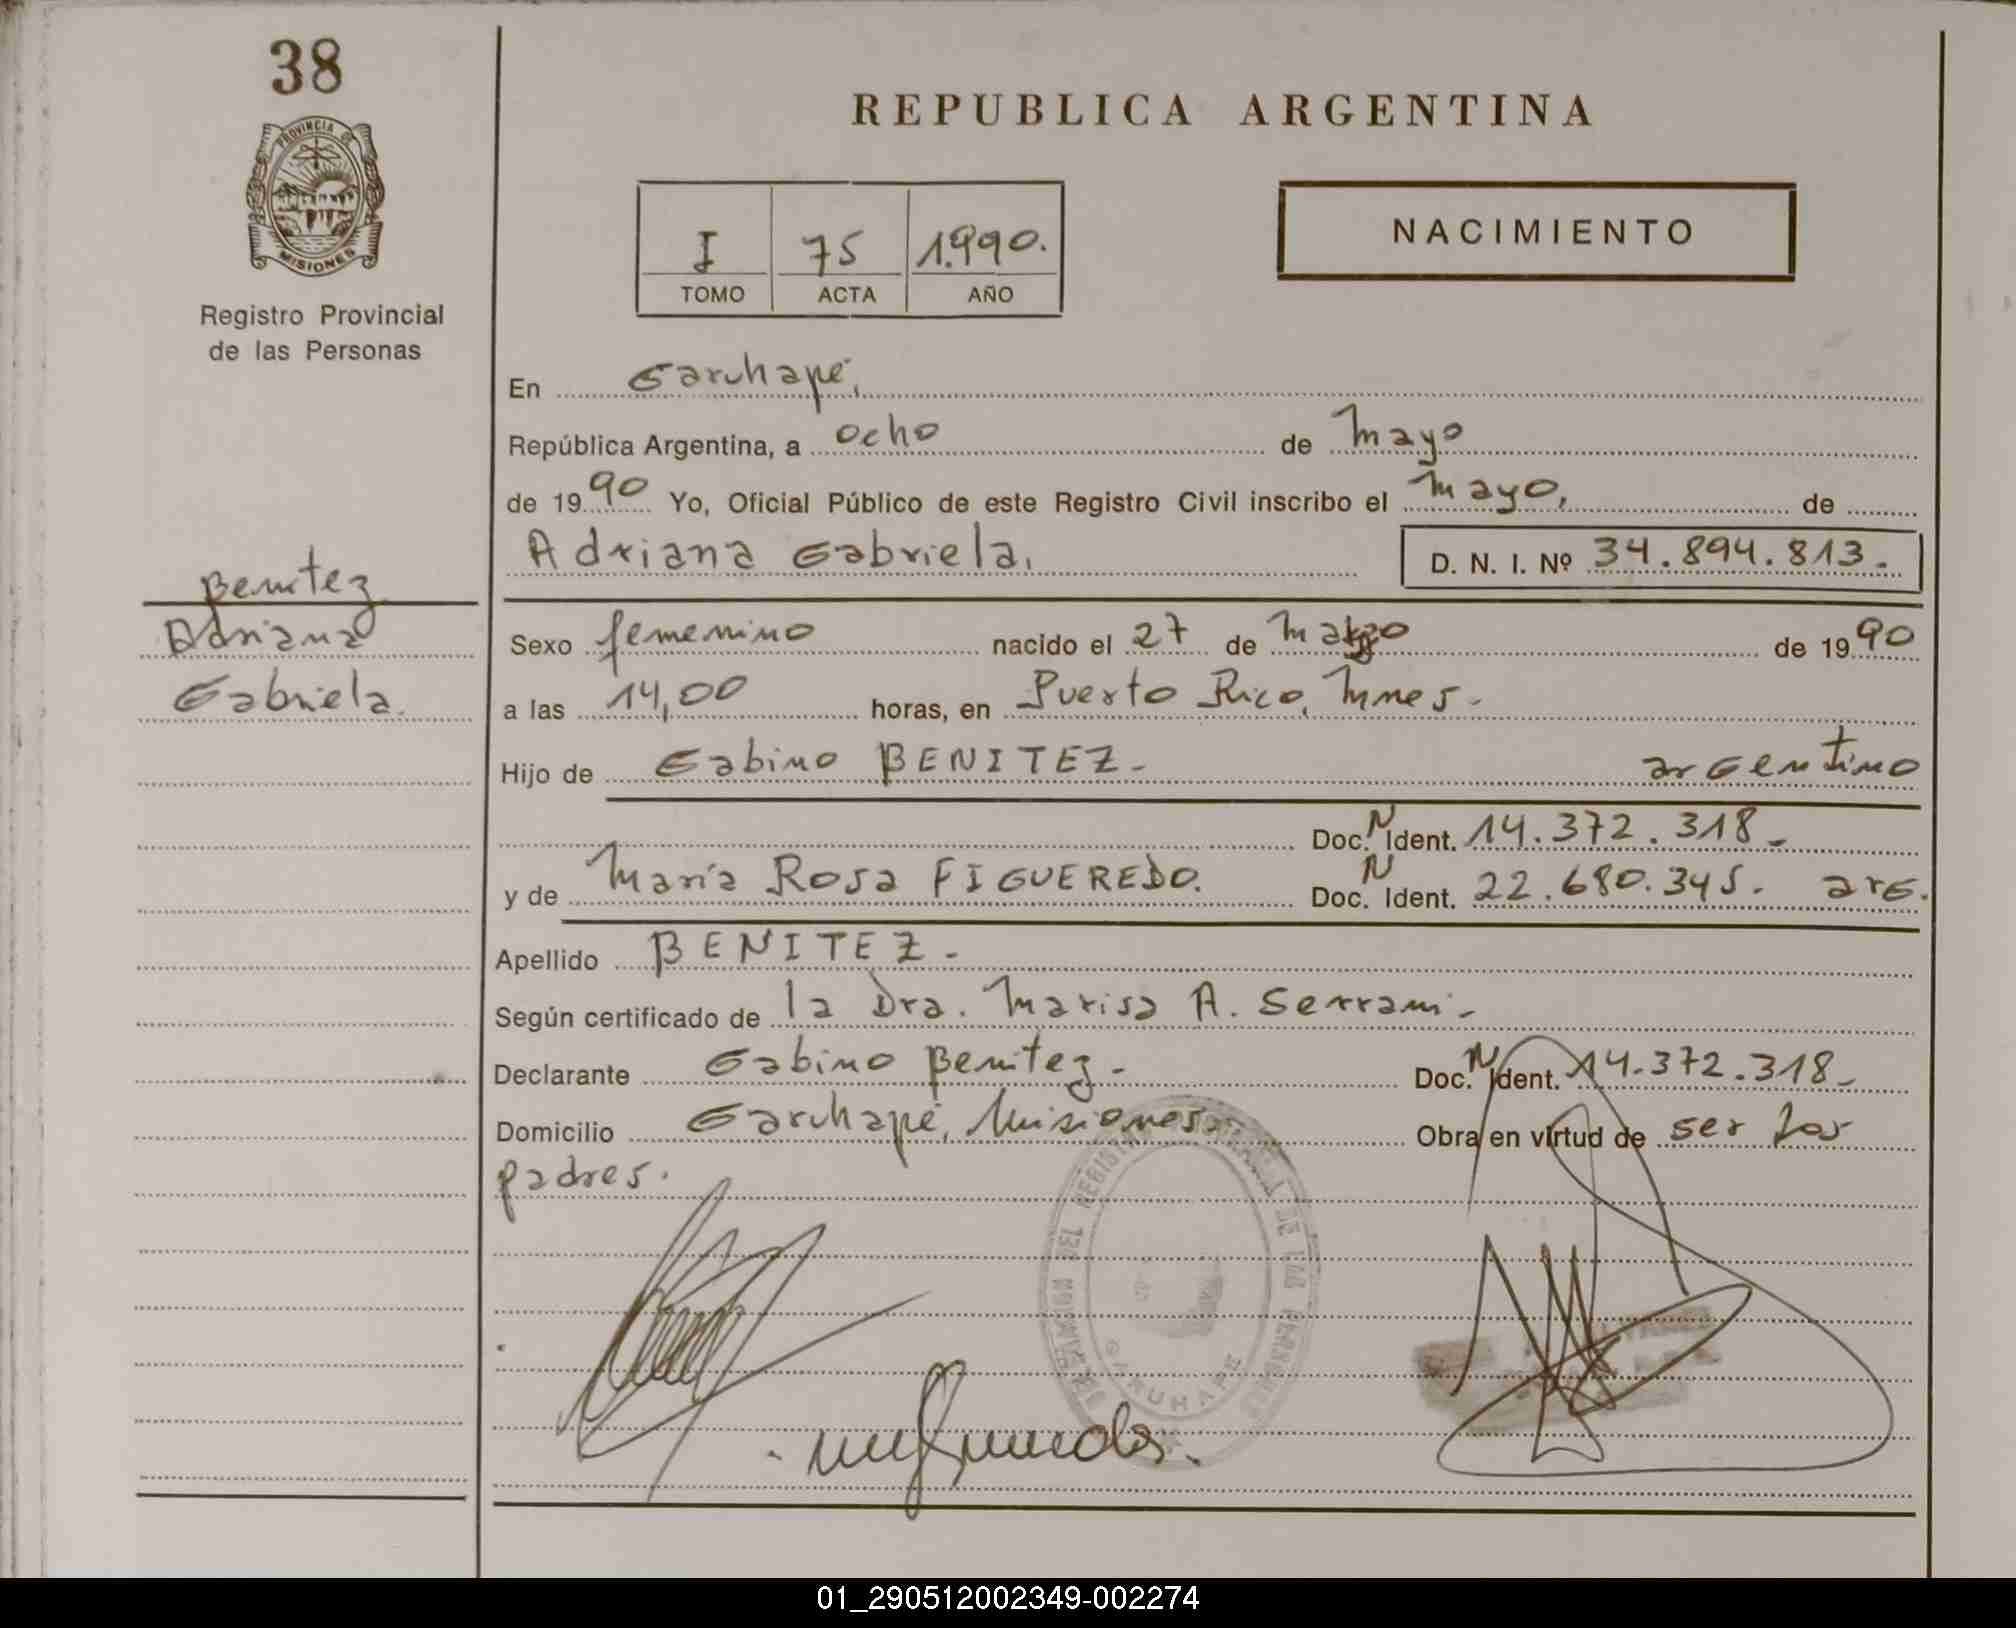 38
PROVINCIA DE
MISIONES
Registro Provincial
de las Personas
Benitez
Adriana
Gabriela.
REPUBLICA ARGENTINA
I 75 1.990.
TOMO ACTA AÑO
NACIMIENTO
En Garuhapé,
República Argentina, a ocho de mayo
de 1990 Yo, Oficial Público de este Registro Civil inscribo el mayo, de
Adriana Gabriela. D. N. I. Nº 34.894.813.-
Sexo femenino nacido el 27 de marzo de 1990
a las 14,00 horas, en Puerto Rico,
Hijo de Gabino BENITEZ.- argentino
Doc. N Ident. 14.372.318.-
y de María Rosa FIGUEREDO. Doc. N Ident. 22.680.345. arg.
Apellido BENITEZ.-
Según certificado de la Dra. Marisa A. Serrani.-
Declarante Gabino Benitez.- Doc. N Ident. 14.372.318.-
Domicilio Garuhapé, Misiones Obra en virtud de ser los
padres.
DEL REGISTRO DE LAS PERSONAS
GARUHAPE
01_290512002349-002274